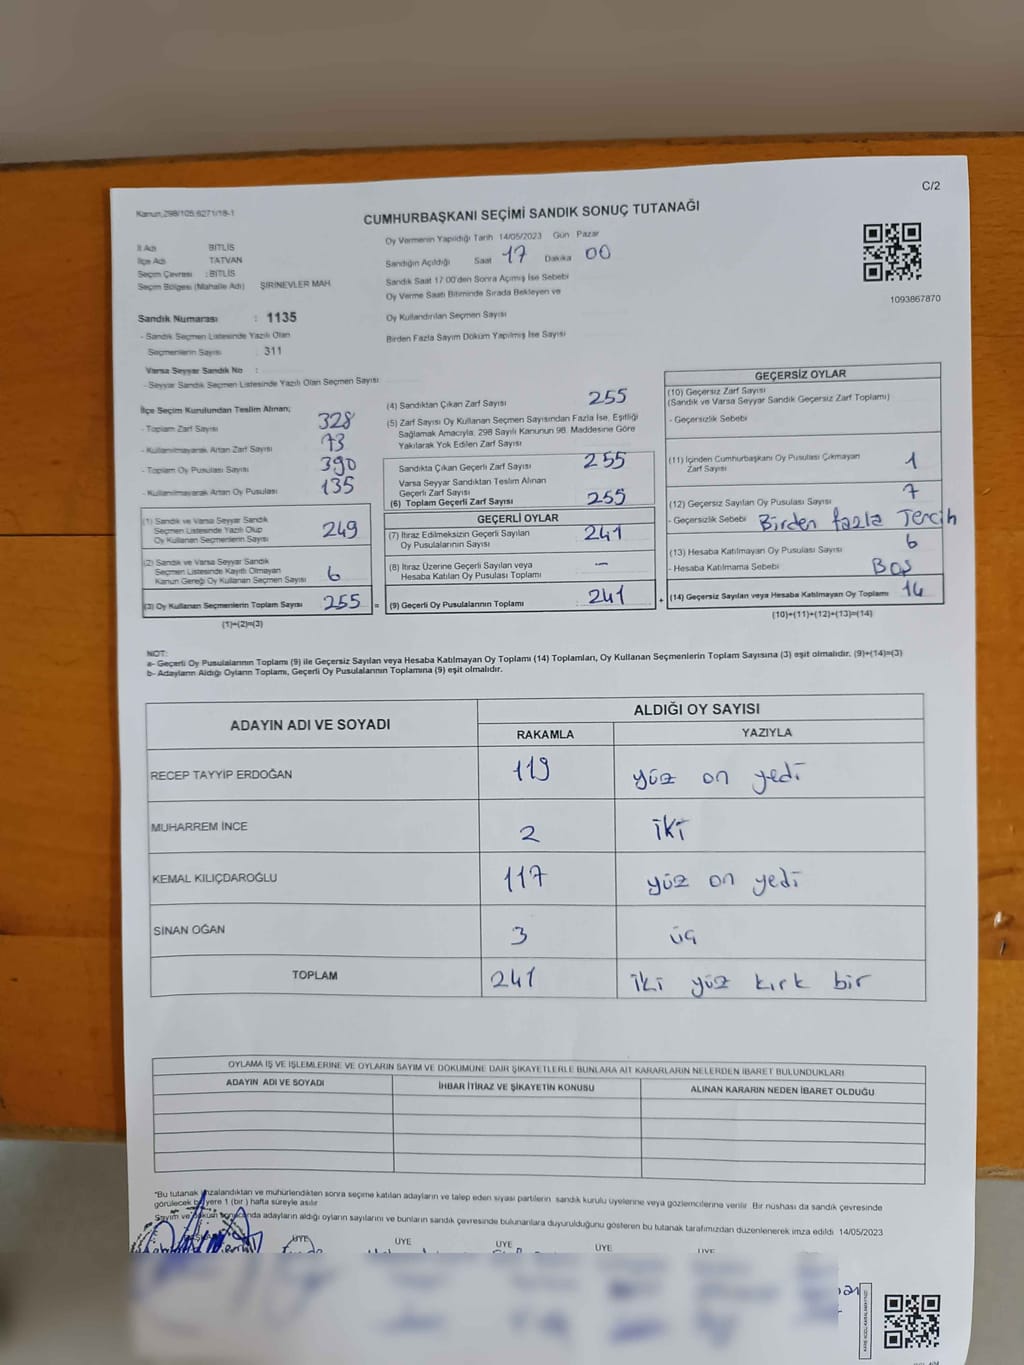 C/2
Kanun,298/105;6271/18-1
CUMHURBAŞKANI SEÇİMİ SANDIK SONUÇ TUTANAĞI
İl Adı BİTLİS
İlçe Adı TATVAN
Seçim Çevresi : BİTLİS
Seçim Bölgesi (Mahalle Adı) ŞİRİNEVLER MAH.
Sandık Numarası : 1135
- Sandık Seçmen Listesinde Yazılı Olan
Seçmenlerin Sayısı : 311
Varsa Seyyar Sandık No :
- Seyyar Sandık Seçmen Listesinde Yazılı Olan Seçmen Sayısı
Oy Vermenin Yapıldığı Tarih 14/05/2023 Gün Pazar
Sandığın Açıldığı Saat 17 Dakika 00
Sandık Saat 17:00'den Sonra Açımış İse Sebebi
Oy Verme Saati Bitiminde Sırada Bekleyen ve
Oy Kullandırılan Seçmen Sayısı
Birden Fazla Sayım Döküm Yapılmış İse Sayısı
1093867870
İlçe Seçim Kurulundan Teslim Alınan;
- Toplam Zarf Sayısı 328
- Kullanılmayarak Artan Zarf Sayısı 73
- Toplam Oy Pusulası Sayısı 390
- Kullanılmayarak Artan Oy Pusulası 135
(1) Sandık ve Varsa Seyyar Sandık
Seçmen Listesinde Yazılı Olup
Oy Kullanan Seçmenlerin Sayısı 249
(2) Sandık ve Varsa Seyyar Sandık
Seçmen Listesinde Kayıtlı Olmayan
Kanun Gereği Oy Kullanan Seçmen Sayısı 6
(3) Oy Kullanan Seçmenlerin Toplam Sayısı 255 =
(1)+(2)=(3)
(4) Sandıktan Çıkan Zarf Sayısı 255
(5) Zarf Sayısı Oy Kullanan Seçmen Sayısından Fazla İse, Eşitliği
Sağlamak Amacıyla, 298 Sayılı Kanunun 98. Maddesine Göre
Yakılarak Yok Edilen Zarf Sayısı
Sandıkta Çıkan Geçerli Zarf Sayısı 255
Varsa Seyyar Sandıktan Teslim Alınan
Geçerli Zarf Sayısı
(6) Toplam Geçerli Zarf Sayısı 255
GEÇERLİ OYLAR
(7) İtiraz Edilmeksizin Geçerli Sayılan
Oy Pusulalarının Sayısı 241
(8) İtiraz Üzerine Geçerli Sayılan veya
Hesaba Katılan Oy Pusulası Toplamı —
(9) Geçerli Oy Pusulalarının Toplamı 241 +
GEÇERSİZ OYLAR
(10) Geçersiz Zarf Sayısı
(Sandık ve Varsa Seyyar Sandık Geçersiz Zarf Toplamı)
- Geçersizlik Sebebi
(11) İçinden Cumhurbaşkanı Oy Pusulası Çıkmayan
Zarf Sayısı 1
(12) Geçersiz Sayılan Oy Pusulası Sayısı 7
- Geçersizlik Sebebi Birden fazla Tercih
(13) Hesaba Katılmayan Oy Pusulası Sayısı 6
- Hesaba Katılmama Sebebi Boş
(14) Geçersiz Sayılan veya Hesaba Katılmayan Oy Toplamı 14
(10)+(11)+(12)+(13)=(14)
NOT:
a- Geçerli Oy Pusulalarının Toplamı (9) ile Geçersiz Sayılan veya Hesaba Katılmayan Oy Toplamı (14) Toplamları, Oy Kullanan Seçmenlerin Toplam Sayısına (3) eşit olmalıdır. (9)+(14)=(3)
b- Adayların Aldığı Oyların Toplamı, Geçerli Oy Pusulalarının Toplamına (9) eşit olmalıdır.
ADAYIN ADI VE SOYADI ALDIĞI OY SAYISI
RAKAMLA YAZIYLA
RECEP TAYYİP ERDOĞAN 119 yüz on yedi
MUHARREM İNCE 2 iki
KEMAL KILIÇDAROĞLU 117 yüz on yedi
SİNAN OĞAN 3 üç
TOPLAM 241 iki yüz kırk bir
OYLAMA İŞ VE İŞLEMLERİNE VE OYLARIN SAYIM VE DÖKÜMÜNE DAİR ŞİKAYETLERLE BUNLARA AİT KARARLARIN NELERDEN İBARET BULUNDUKLARI
ADAYIN ADI VE SOYADI İHBAR İTİRAZ VE ŞİKAYETİN KONUSU ALINAN KARARIN NEDEN İBARET OLDUĞU
*Bu tutanak imzalandıktan ve mühürlendikten sonra seçime katılan adayların ve talep eden siyasi partilerin sandık kurulu üyelerine veya gözlemcilerine verilir. Bir nüshası da sandık çevresinde
görülecek bir yere 1 (bir) hafta süreyle asılır
Sayım ve döküm sonucunda adayların aldığı oyların sayılarını ve bunların sandık çevresinde bulunanlara duyurulduğunu gösteren bu tutanak tarafımızdan düzenlenerek imza edildi. 14/05/2023
ÜYE ÜYE ÜYE ÜYE ÜYE